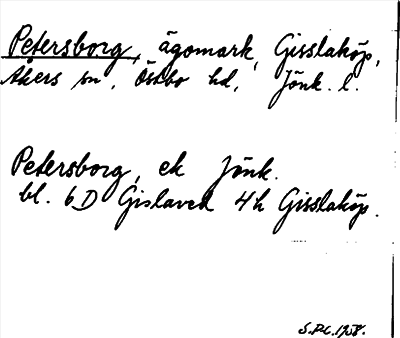 Petersborg, ägomark, Gisslaköp,
Åkers sn, Östbo hd, Jönk. l.
Petersborg, ek Jönk.
bl. 6D Gislaved 4h Gisslaköp.
1958.